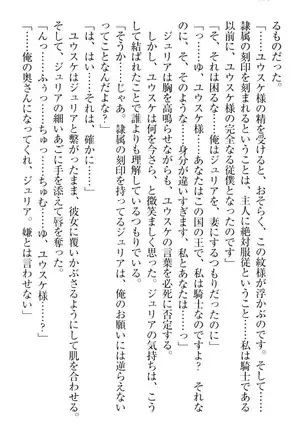 るものだった。
「……ユウスケ様の精を受けると、おそらく、この紋様が浮かぶのです。そして……
隷属の刻印を刻まれるということは、主人に絶対服従ということ……私は騎士である
以前に、ユウスケ様の完全なる従僕となったのです」
「え、それは困るな……俺はジュリアを、妻にするつもりだったのに」
「っ……ゆ、ユウスケ様……あなたはこの国の王で、私は騎士なのですよ?　それ
な、そのような……身分が違いすぎます、私とあなたは……っ」
ジュリアは胸を高鳴らせながらも、ユウスケの言葉を必死に否定する。
しかし、ユウスケは何を今さら、と微笑ましく思った。ジュリアの気持ちは、こう
して結ばれたことで誰よりも理解しているつもりでいる。
「そうか……じゃあ。隷属の刻印が刻まれたジュリアは、俺のお願いには逆らえない
ってことなんだよな?」
「は、はい……それは、確かに……」
ユウスケはジュリアと繋がったまま、彼女に覆いかぶさるようにして肌を合わせる。
そして、ジュリアの細いあごに手を添えて唇を奪った。
「んっ……ふぅっ……ちゅっ……ちゅむ……ゆ、ユウスケ様……?」
「……俺の奥さんになってくれ、ジュリア。嫌とは言わせない」